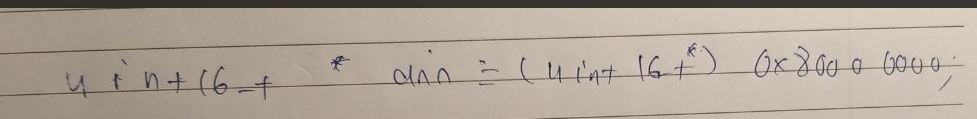 uint16_t * ann = (uint 16t*) 0x8000 0000;